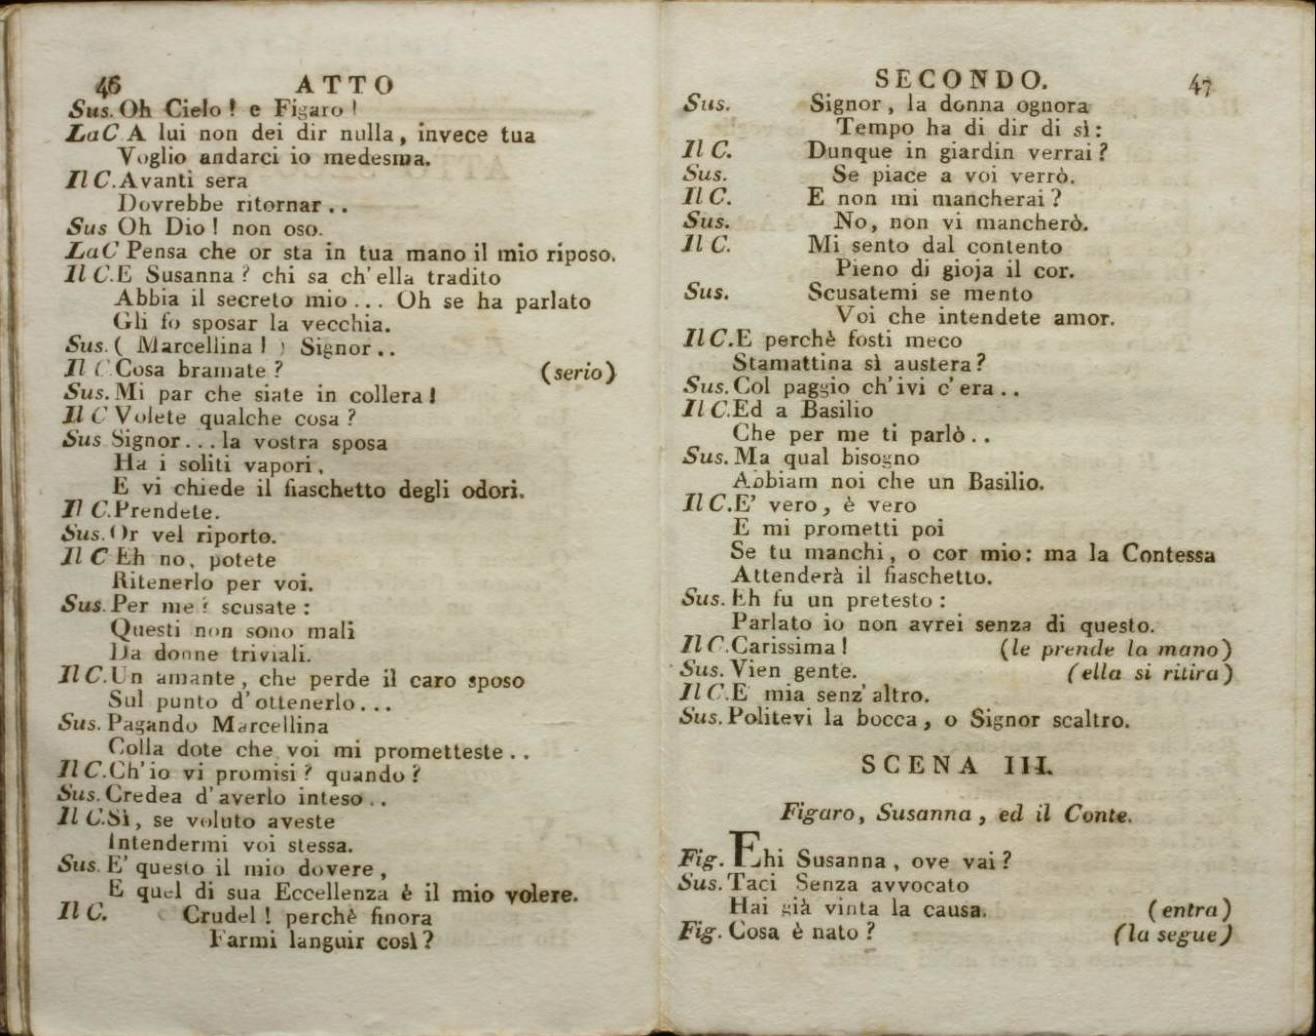 46 ATTO
Sus. Oh Cielo! e Figaro!
La C A lui non dei dir nulla, invece tua
Voglio andarci io medesma.
Il C. Avanti sera
Dovrebbe ritornar..
Sus Oh Dio! non oso.
La C Pensa che or sta in tua mano il mio riposo.
Il C. E Susanna? chi sa ch' ella tradito
Abbia il secreto mio... Oh se ha parlato
Gli fo sposar la vecchia.
Sus. (Marcellina!) Signor..
Il C Cosa bramate? (serio)
Sus. Mi par che siate in collera!
Il C Volete qualche cosa?
Sus Signor... la vostra sposa
Ha i soliti vapori,
E vi chiede il fiaschetto degli odori.
Il C. Prendete.
Sus. Or vel riporto.
Il C Eh no, potete
Ritenerlo per voi.
Sus. Per me? scusate:
Questi non sono mali
Da donne triviali.
Il C. Un amante, che perde il caro sposo
Sul punto d' ottenerlo...
Sus. Pagando Marcellina
Colla dote che voi mi prometteste..
Il C. Ch' io vi promisi? quando?
Sus. Credea d' averlo inteso..
Il C. Sì, se voluto aveste
Intendermi voi stessa.
Sus. E' questo il mio dovere,
E quel di sua Eccellenza è il mio volere.
Il C. Crudel! perchè finora
Farmi languir così?
SECONDO. 47
Sus. Signor, la donna ognora
Tempo ha di dir di sì:
Il C. Dunque in giardin verrai?
Sus. Se piace a voi verrò.
Il C. E non mi mancherai?
Sus. No, non vi mancherò.
Il C. Mi sento dal contento
Pieno di gioja il cor.
Sus. Scusatemi se mento
Voi che intendete amor.
Il C. E perchè fosti meco
Stamattina sì austera?
Sus. Col paggio ch' ivi c' era..
Il C. Ed a Basilio
Che per me ti parlò..
Sus. Ma qual bisogno
Abbiam noi che un Basilio.
Il C. E' vero, è vero
E mi prometti poi
Se tu manchi, o cor mio: ma la Contessa
Attenderà il fiaschetto.
Sus. Eh fu un pretesto:
Parlato io non avrei senza di questo.
Il C. Carissima! (le prende la mano)
Sus. Vien gente. (ella si ritira)
Il C. E mia senz' altro.
Sus. Politevi la bocca, o Signor scaltro.
SCENA III.
Figaro, Susanna, ed il Conte.
Fig. Ehi Susanna, ove vai?
Sus. Taci Senza avvocato
Hai già vinta la causa. (entra)
Fig. Cosa è nato? (la segue)